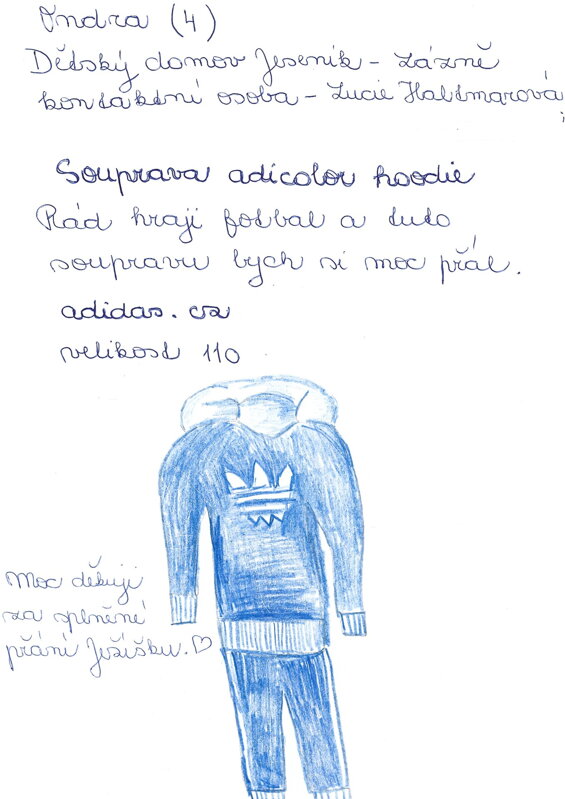 Ondra (4)
Dětský domov Jeseník - Lázně
kontaktní osoba - Lucie Haltmarová
Souprava adicolor hoodie
Rád hraji fotbal a tuto
soupravu bych si moc přál.
adidas.cz
velikost 110
Moc děkuji
za splnění
přání Ježíšku. ♡